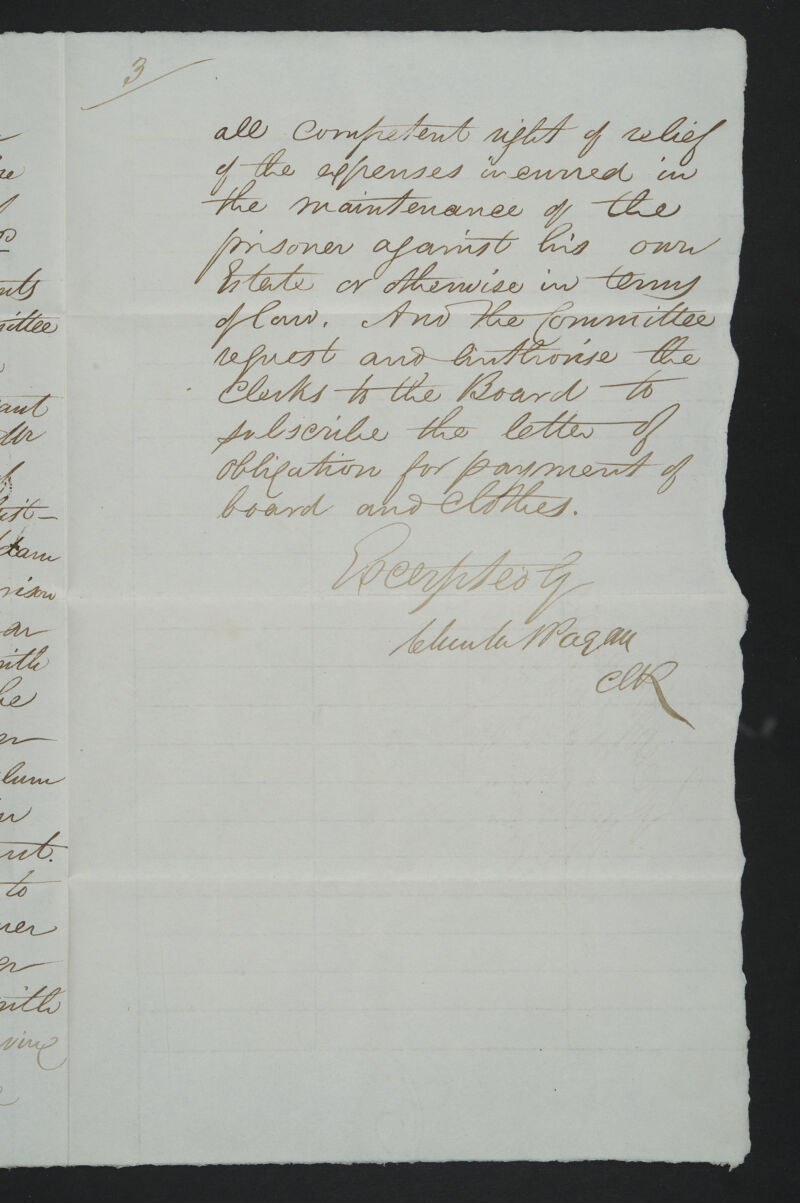 3
all competent right of relief
of the expenses incurred in
the maintenance of the
prisoner against his own
Estate or otherwise in terms
of law. And the Committee
request and authorise the
Clerks to the Board to
subscribe the letter of
obligation for payment of
board and clothes.
Excerpted by
Pagan
Clk
nts
mittee
ant
dam
rison
an
with
he
er
lum
nt.
to
ner
er
with
ving